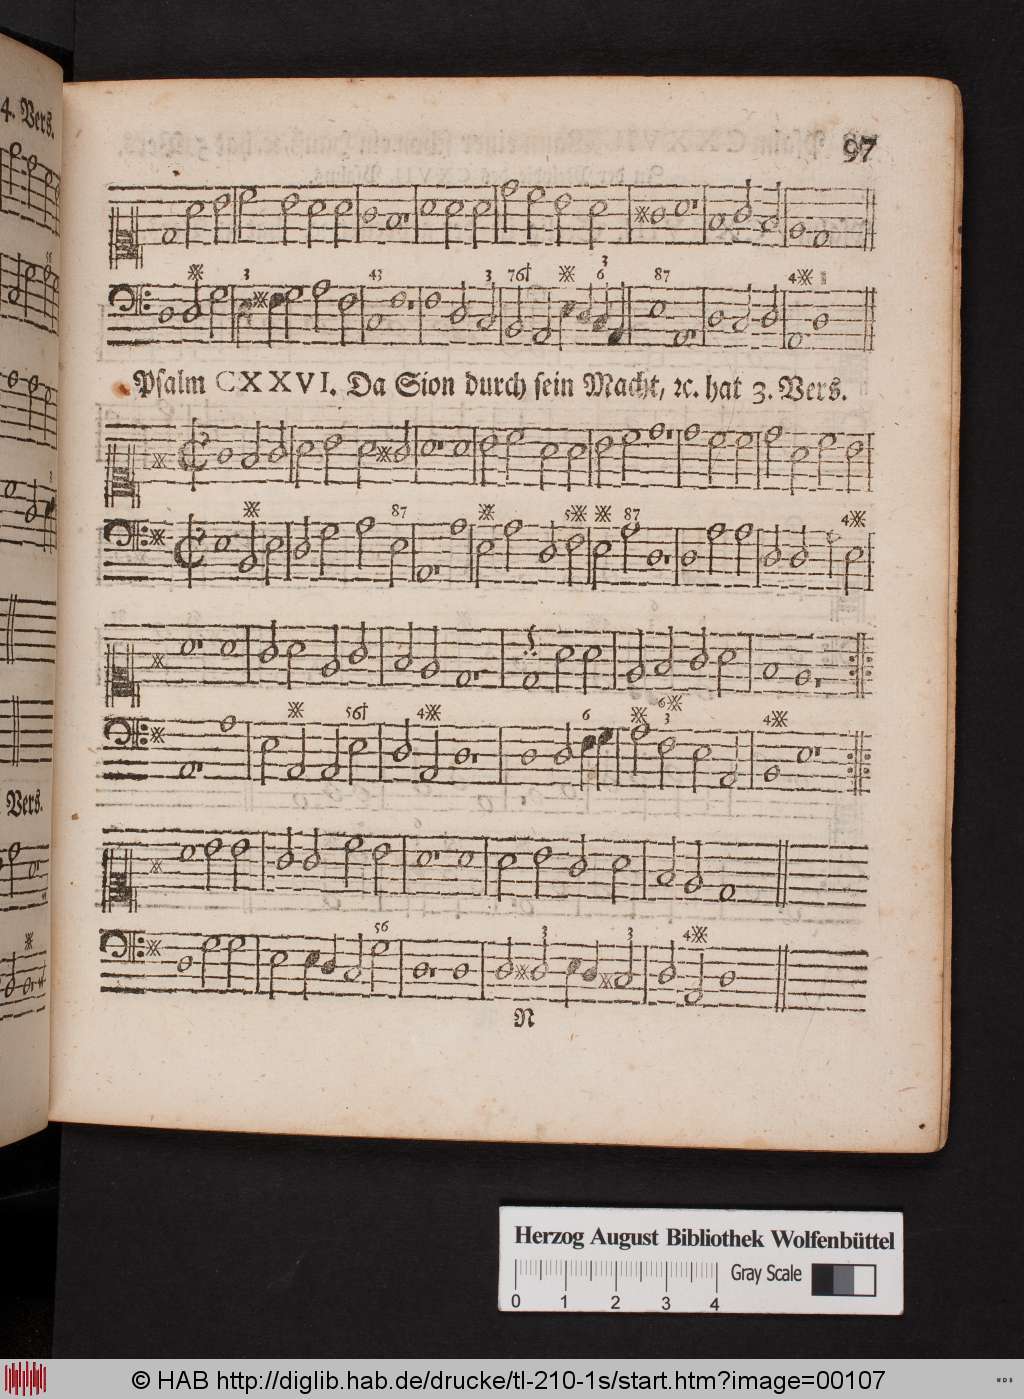 4. Vers.
97
3 43 3 76† 3 6 87 4
Psalm CXXVI. Da Sion durch sein Macht, ꝛc. hat 3. Vers.
87 5 87 4
56† 4 6 6 3 4
Vers.
56 3 3 4
N
Herzog August Bibliothek Wolfenbüttel
Gray Scale
0 1 2 3 4
© HAB http://diglib.hab.de/drucke/tl-210-1s/start.htm?image=00107